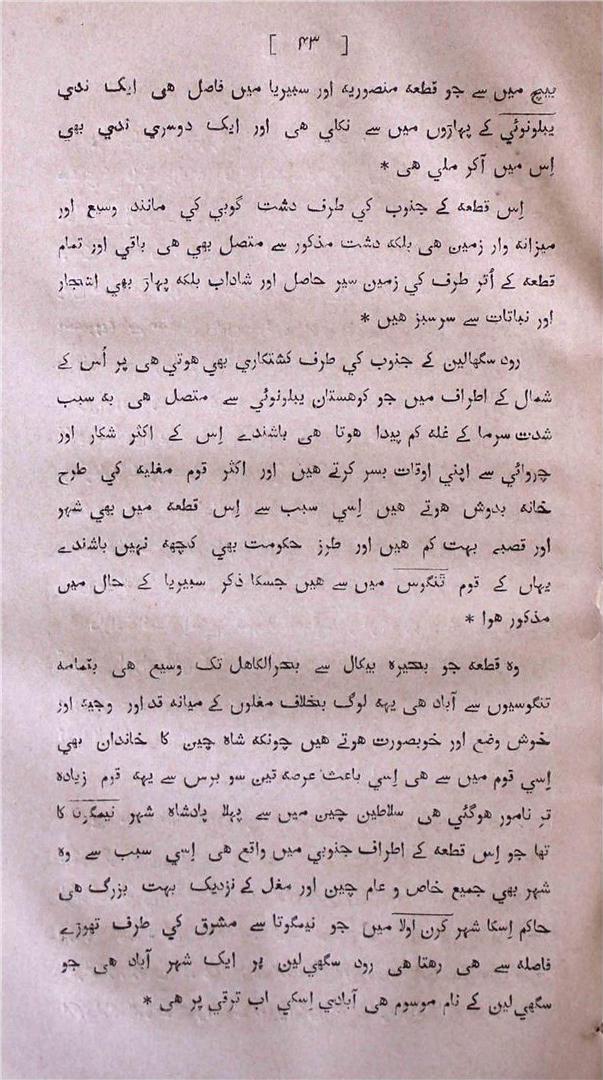 [ ۴۳ ]
بیچ میں سے جو قطعہ منصوریہ اور سبیریا میں فاصل هی ایک ندي
یبلونوئي کے پہاڑوں میں سے نکلي هی اور ایک دوسري ندي بھی
اِس میں آکر ملي هی *
اِس قطعہ کے جنوب کي طرف دشت گوبي کي مانند وسیع اور
میزانہ وار زمین هی بلکہ دشت مذکور سے متصل بھي هی باقي اور تمام
قطعہ کے اُتر طرف کي زمین سیر حاصل اور شاداب بلکہ پہاڑ بھي اشجار
اور نباتات سے سرسبز هیں *
رود سگھالین کے جنوب کي طرف کشتکاري بھي هوتي هی پر اُس کے
شمال کے اطراف میں جو کوهستان یبلونوئي سے متصل هی به سبب
شدت سرما کے غلہ کم پیدا هوتا هی باشندے اِس کے اکثر شکار اور
چروائي سے اپني اوقات بسر کرتے هیں اور اکثر قوم مغلیہ کي طرح
خانہ بدوش هوتے هیں اِسي سبب سے اِس قطعہ میں بھي شہر
اور قصبے بہت کم هیں اور طرز حکومت بھي کچھہ نہیں باشندے
یہاں کے قوم تنگوس میں سے هیں جسکا ذکر سبیریا کے حال میں
مذکور هوا *
وہ قطعہ جو بحیرہ بیکال سے بحرالکاهل تک وسیع هی بتمامہ
تنگوسیوں سے آباد هی یہہ لوگ بخلاف مغلوں کے میانہ قد اور وجیہ اور
خوش وضع اور خوبصورت هوتے هیں چونکہ شاہ چین کا خاندان بھي
اِسي قوم میں سے هی اِسي باعث عرصہ تین سو برس سے یہہ قوم زیادہ
تر نامور هوگئي هی سلاطین چین میں سے پہلا پادشاہ شہر نیمگوتا کا
تھا جو اِس قطعہ کے اطراف جنوبي میں واقع هی اِسي سبب سے وہ
شہر بھي جمیع خاص و عام چین اور مغل کے نزدیک بہت بزرگ هی
حاکم اِسکا شہر کرن اولا میں جو نیمگوتا سے مشرق کي طرف تھوڑے
فاصلہ سے هی رهتا هی رود سگھي لین پر ایک شہر آباد هی جو
سگھي لین کے نام موسوم هی آبادي اِسکي اب ترقي پر هی *